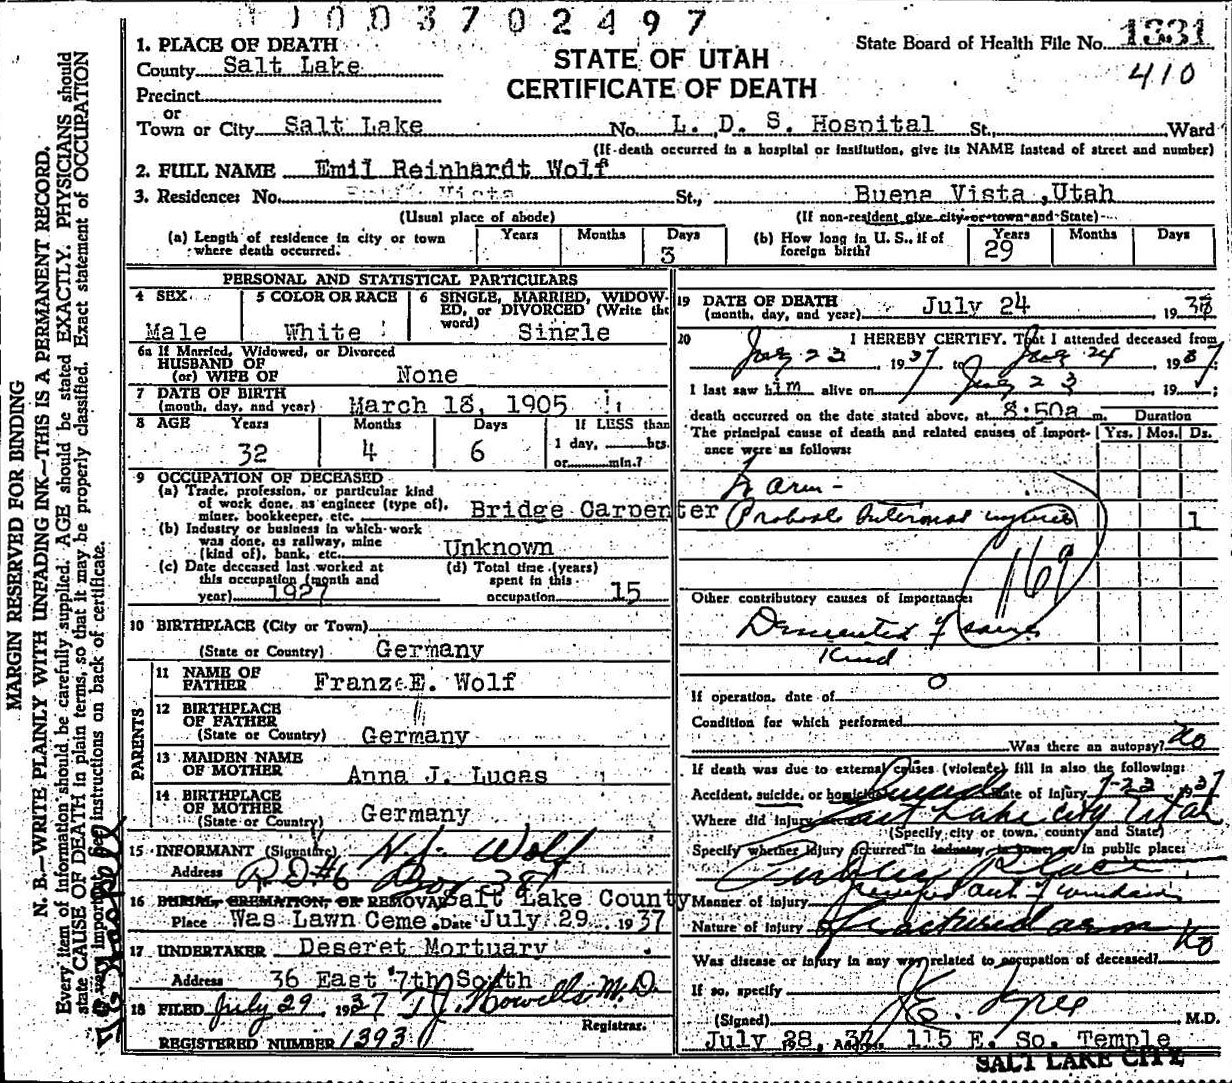 1003702497
STATE OF UTAH
CERTIFICATE OF DEATH
State Board of Health File No. 1331
410
1. PLACE OF DEATH
County Salt Lake
Precinct
or
Town or City Salt Lake No. L. D. S. Hospital St., Ward
(If death occurred in a hospital or institution, give its NAME instead of street and number)
2. FULL NAME Emil Reinhardt Wolf
3. Residence: No. St., Buena Vista, Utah
(Usual place of abode) (If non-resident give city or town and State)
(a) Length of residence in city or town where death occurred. Years Months Days 3
(b) How long in U. S., if of foreign birth? Years 29 Months Days
PERSONAL AND STATISTICAL PARTICULARS
4 SEX Male
5 COLOR OR RACE White
6 SINGLE, MARRIED, WIDOWED, or DIVORCED (Write the word) Single
6a If Married, Widowed, or Divorced
HUSBAND OF
(or) WIFE OF None
7 DATE OF BIRTH
(month, day, and year) March 18, 1905
8 AGE Years 32 Months 4 Days 6 If LESS than 1 day, hrs. or min.?
9 OCCUPATION OF DECEASED
(a) Trade, profession, or particular kind of work done, as engineer (type of), miner, bookkeeper, etc. Bridge Carpenter
(b) Industry or business in which work was done, as railway, mine (kind of), bank, etc. Unknown
(c) Date deceased last worked at this occupation (month and year) 1927
(d) Total time (years) spent in this occupation 15
10 BIRTHPLACE (City or Town)
(State or Country) Germany
PARENTS
11 NAME OF FATHER Franz E. Wolf
12 BIRTHPLACE OF FATHER
(State or Country) Germany
13 MAIDEN NAME OF MOTHER Anna J. Lucas
14 BIRTHPLACE OF MOTHER
(State or Country) Germany
15 INFORMANT (Signature) H. J. Wolf
Address R.D. #6 Box 387
16 BURIAL, CREMATION, OR REMOVAL Salt Lake County
Place Was Lawn Ceme. Date July 29 1937
17 UNDERTAKER Deseret Mortuary
Address 36 East 7th South
18 FILED July 29, 1937 T. J. Howells M.D.
Registrar.
REGISTERED NUMBER 1393
19 DATE OF DEATH
(month, day, and year) July 24 1937
20 I HEREBY CERTIFY, That I attended deceased from
July 23, 1937 to July 24, 1937
I last saw him alive on July 23, 19 7
death occurred on the date stated above, at 8:50a m.
Duration
The principal cause of death and related causes of importance were as follows: Yrs. Mos. Ds.
Fr arm -
Probable Internal injuries 1
169
Other contributory causes of importance:
Demented of some
Kind
If operation, date of 0
Condition for which performed
Was there an autopsy? No
If death was due to external causes (violence) fill in also the following:
Accident, suicide, or homicide Date of injury 7-23 1937
Where did injury Salt Lake City Utah
(Specify city or town, county and State)
Specify whether injury occurred in industry, in home, or in public place:
Public Place
Manner of injury Jumped out of window
Nature of injury fractured arm
Was disease or injury in any way related to occupation of deceased? No
If so, specify
(Signed) J. E. Tyree M.D.
July 28, 37 Address 115 E. So. Temple
SALT LAKE CITY
MARGIN RESERVED FOR BINDING
N. B.—WRITE PLAINLY WITH UNFADING INK—THIS IS A PERMANENT RECORD.
Every item of information should be carefully supplied. AGE should be stated EXACTLY. PHYSICIANS should
state CAUSE OF DEATH in plain terms, so that it may be properly classified. Exact statement of OCCUPATION
is very important. See instructions on back of certificate.